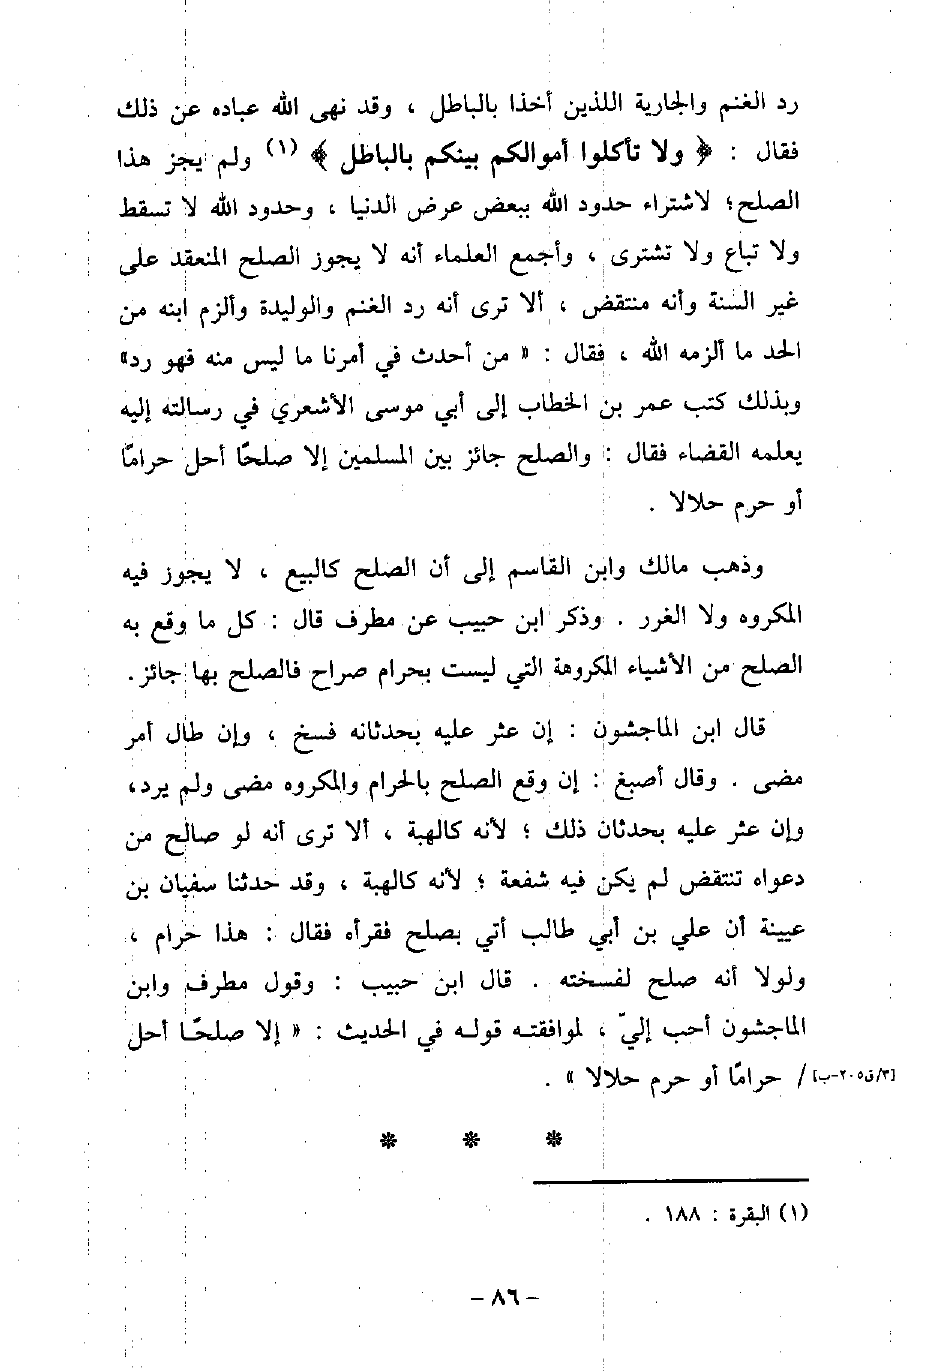 رد الغنم والجارية اللذين أخذا بالباطل ، وقد نهى الله عباده عن ذلك
فقال : ﴿ ولا تأكلوا أموالكم بينكم بالباطل ﴾ (١) ولم يجز هذا
الصلح؛ لاشتراء حدود الله ببعض عرض الدنيا ، وحدود الله لا تسقط
ولا تباع ولا تشترى ، وأجمع العلماء أنه لا يجوز الصلح المنعقد على
غير السنة وأنه منتقض ، ألا ترى أنه رد الغنم والوليدة وألزم ابنه من
الحد ما ألزمه الله ، فقال : « من أحدث في أمرنا ما ليس منه فهو رد»
وبذلك كتب عمر بن الخطاب إلى أبي موسى الأشعري في رسالته إليه
يعلمه القضاء فقال : والصلح جائز بين المسلمين إلا صلحًا أحل حرامًا
أو حرم حلالا .
وذهب مالك وابن القاسم إلى أن الصلح كالبيع ، لا يجوز فيه
المكروه ولا الغرر . وذكر ابن حبيب عن مطرف قال : كل ما وقع به
الصلح من الأشياء المكروهة التي ليست بحرام صراح فالصلح بها جائز.
قال ابن الماجشون : إن عثر عليه بحدثانه فسخ ، وإن طال أمر
مضى . وقال أصبغ : إن وقع الصلح بالحرام والمكروه مضى ولم يرد،
وإن عثر عليه بحدثان ذلك ؛ لأنه كالهبة ، ألا ترى أنه لو صالح من
دعواه تنتقض لم يكن فيه شفعة ؛ لأنه كالهبة ، وقد حدثنا سفيان بن
عيينة أن علي بن أبي طالب أتي بصلح فقرأه فقال : هذا حرام ،
ولولا أنه صلح لفسخته . قال ابن حبيب : وقول مطرف وابن
الماجشون أحب إليّ ، لموافقته قوله في الحديث : « إلا صلحًا أحل
[٣/ق٢٠٥-ب] / حرامًا أو حرم حلالا » .
* * *
(١) البقرة : ١٨٨ .
- ٨٦ -